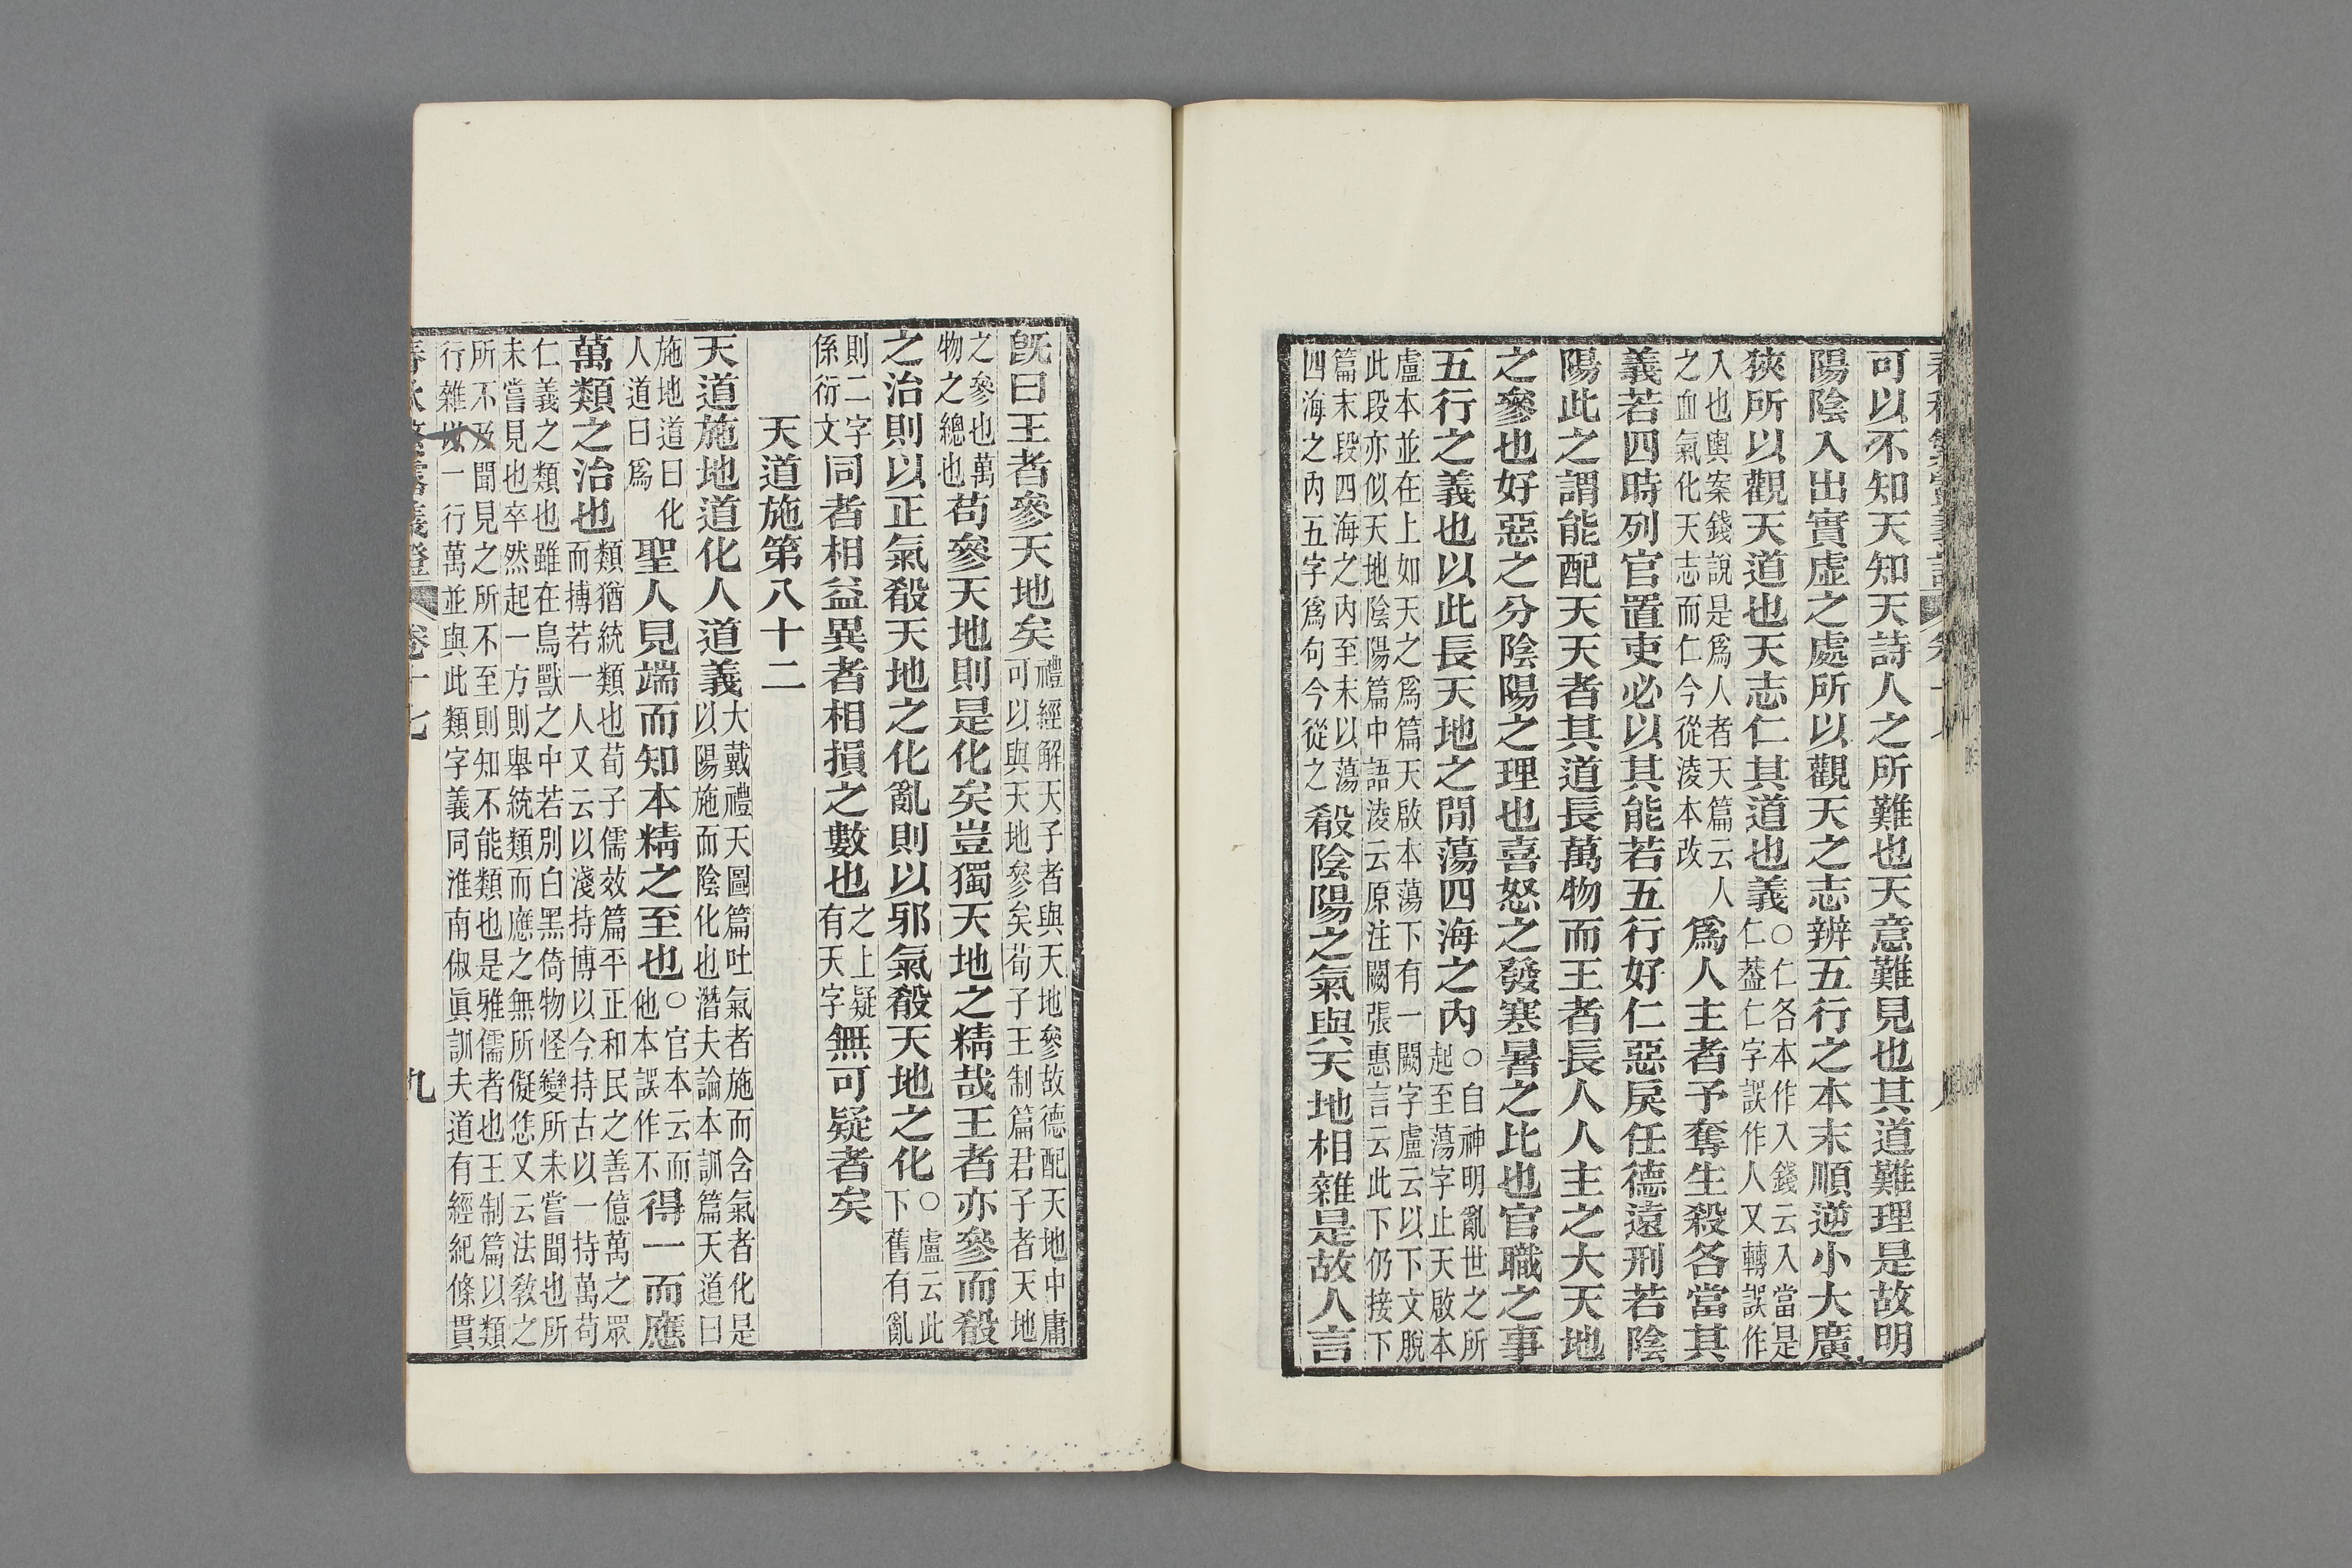 可以不知天知天詩人之所難也天意難見也其道難理是故明
陽陰入出實虛之處所以觀天之志辨五行之本末順逆小大廣
狹所以觀天道也天志仁其道也義○仁各本作入錢云入當是
仁葢仁字誤作人又轉誤作
入也輿案錢說是爲人者天篇云人
之血氣化天志而仁今從淩本改
爲人主者予奪生殺各當其
義若四時列官置吏必以其能若五行好仁惡戾任德遠刑若陰
陽此之謂能配天天者其道長萬物而王者長人人主之大天地
之參也好惡之分陰陽之理也喜怒之發寒暑之比也官職之事
五行之義也以此長天地之閒蕩四海之內○自神明亂世之所
起至蕩字止天啟本
盧本並在上如天之爲篇天啟本蕩下有一闕字盧云以下文脫
此段亦似天地陰陽篇中語淩云原注闕張惠言云此下仍接下
篇末段四海之內至末以蕩
四海之內五字爲句今從之
殽陰陽之氣與天地相雜是故人言
既曰王者參天地矣禮經解天子者與天地參故德配天地中庸
可以與天地參矣荀子王制篇君子者天地
之參也萬
物之總也
苟參天地則是化矣豈獨天地之精哉王者亦參而殽
之治則以正氣殽天地之化亂則以邪氣殽天地之化○盧云此
下舊有亂
則二字
係衍文
同者相益異者相損之數也之上疑
有天字
無可疑者矣
天道施第八十二
天道施地道化人道義大戴禮天圓篇吐氣者施而含氣者化是
以陽施而陰化也潛夫論本訓篇天道曰
施地道曰化
人道曰爲
聖人見端而知本精之至也○官本云而
他本誤作不
得一而應
萬類之治也類猶統類也荀子儒效篇平正和民之善億萬之眾
而摶若一人又云以淺持博以今持古以一持萬苟
仁義之類也雖在鳥獸之中若別白黑倚物怪變所未嘗聞也所
未嘗見也卒然起一方則舉統類而應之無所儗㤰又云法敎之
所不及聞見之所不至則知不能類也是雅儒者也王制篇以類
行雜以一行萬並與此類字義同淮南俶眞訓夫道有經紀條貫
春秋繁露義證
卷十七
九